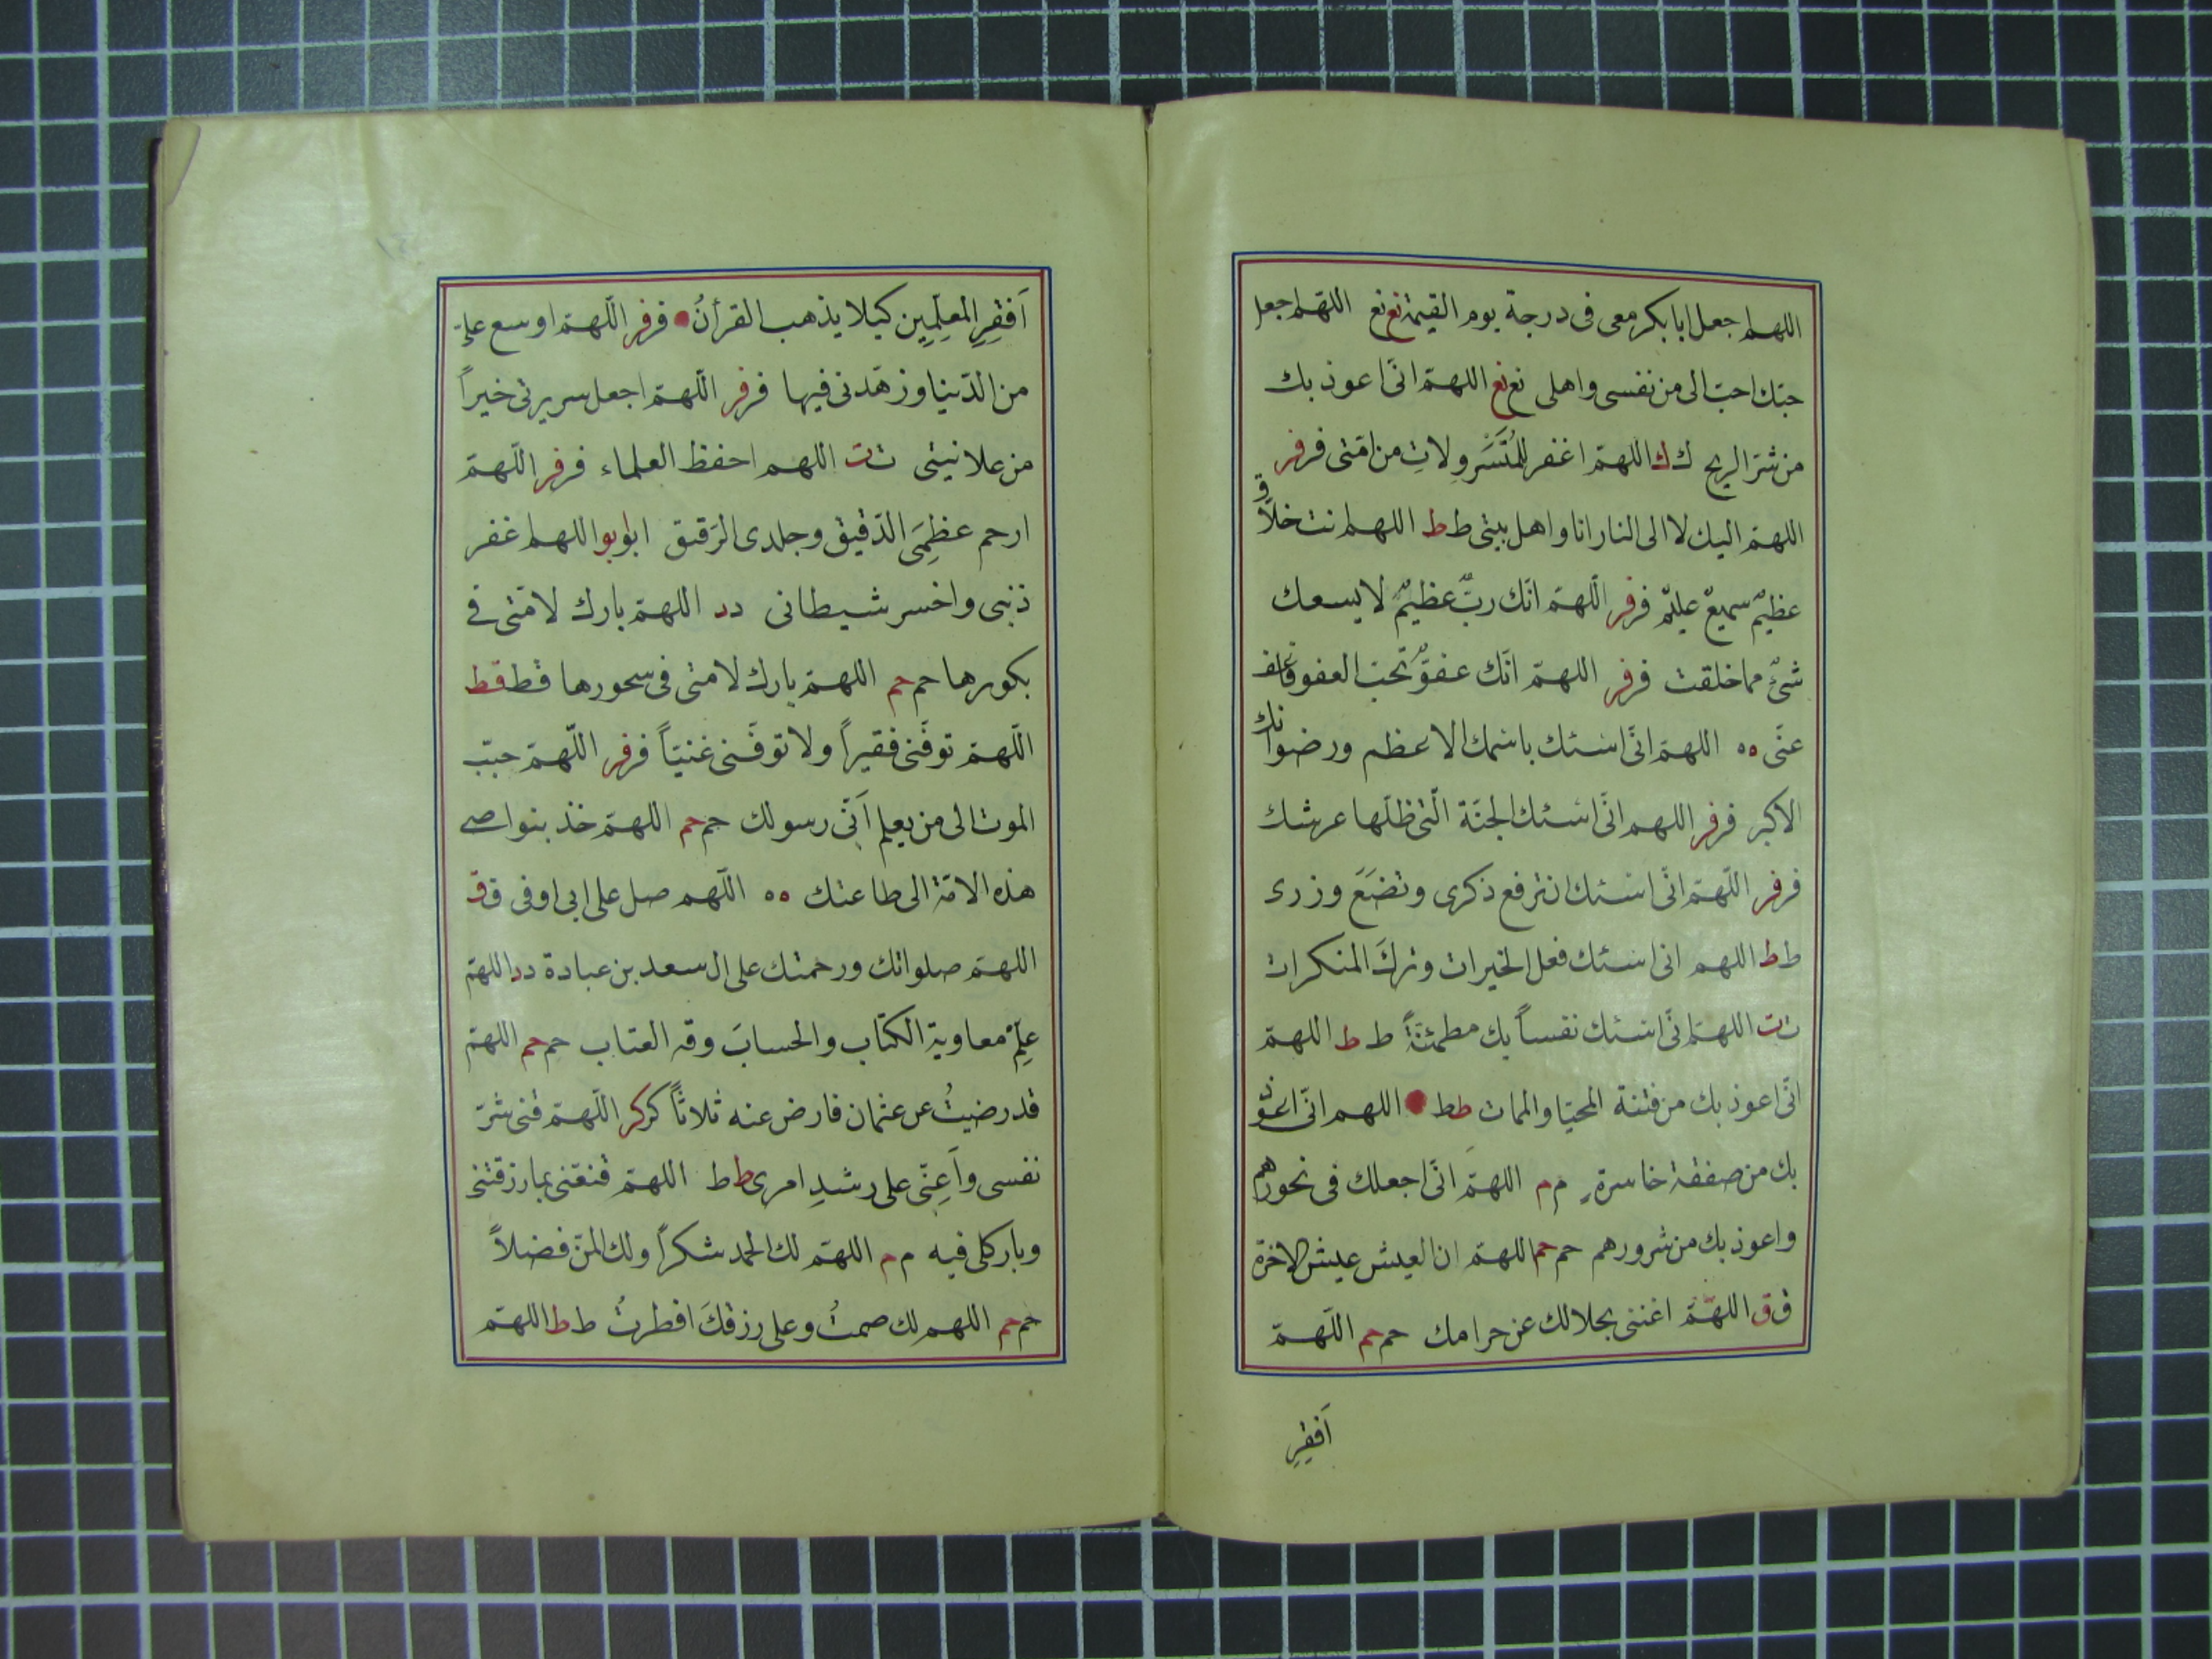 اللهم اجعل ابا بكر معى فى درجة يوم القيمة نع نع اللهم اجعل
حبّك احبّ الى من نفسى واهلى نع نع اللهمّ انّى اعوذ بك
من شرّ الريح ك ك اللهمّ اغفر للمُتَسَرْوِلاتِ من امّتى فر فر
اللهمّ اليك لا الى النار انا واهل بيتى ط ط اللهم انت خلّاق
عظيمٌ سميعٌ عليمٌ فر فر اللّهمّ انّك ربٌّ عظيمٌ لا يسعك
شئٌ مما خلقت فر فر اللهمّ انّك عفوٌّ تحبّ العفو فاعف
عنّى ه ه اللهمّ انّى اسئلك باسمك الاعظم ورضوانك
الاكبر فر فر اللهم انّى اسئلك الجنّة الّتى ظلّها عرشك
فر فر اللّهمّ انّى اسئلك ان ترفع ذكرى وتضَعَ وزرى
ط ط اللهم انى اسئلك فعل الخيرات وتركَ المنكرات
ت ت اللهمّ انّى اسئلك نفساً بك مطمئنّةً ط ط اللهمّ
انّى اعوذ بك من فتنة المحيا والممات ط ط اللهم انّى اعوذ
بك من صفقة خاسرةٍ م م اللهمّ انّى اجعلك فى نحورهم
واعوذ بك من شرورهم حم حم اللهمّ ان العيش عيش الاخرة
ق ق اللهمّ اغننى بحلالك عن حرامك حم حم اللّهمّ
اَفقِرِ
اَفقِرِ المعلِّمِين كيلا يذهب القرأنُ فر فر اللّهمّ اوسع علىّ
من الدّنيا وزهّدنى فيها فر فر اللّهمّ اجعل سريرتى خيراً
من علانيتى ت ت اللهم احفظ العلماء فر فر اللّهمّ
ارحم عظمِىَ الدّقيق وجلدى الرّقيق ابو بو اللهم اغفر
ذنبى واخسر شيطانى د د اللهمّ بارك لامّتى فى
بكورها حم حم اللهمّ بارك لامتى فى سحورها قط قط
اللّهمّ توفّنى فقيراً ولا توفّنى غنيّاً فر فر اللّهمّ حبّب
الموت الى من يعلم اَنّى رسولك حم حم اللهمّ خذ بنواصى
هذه الامّة الى طاعتك ه ه اللّهم صل على ابى اوفى ق ق
اللهمّ صلواتك ورحمتك على ال سعد بن عبادة د د اللهمّ
علِّمْ معاوية الكتاب والحسابَ وقه العتاب حم حم اللهمّ
قد رضيتُ عن عثمان فارض عنه ثلاثاً كر كر اللّهمّ قنى شرّ
نفسى واَعِنّى على رشدِ امرى ط ط اللهمّ قنّعنى بما رزقتنى
وبارك لى فيه م م اللهمّ لك الحمد شكراً ولك المنّ فضلاً
حم حم اللهم لك صمتُ وعلى رزقكَ افطرتُ ط ط اللهمّ